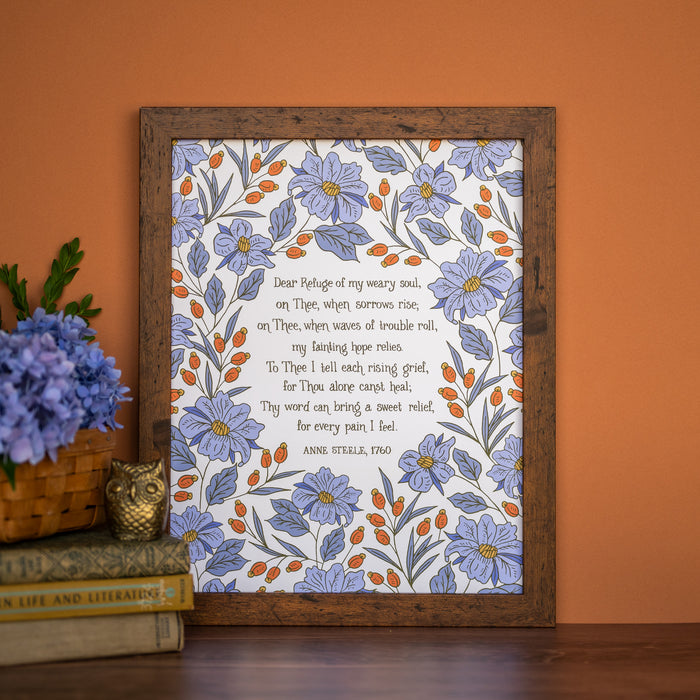 Dear Refuge of my weary soul,
on Thee, when sorrows rise;
on Thee, when waves of trouble roll,
my fainting hope relies.
To Thee I tell each rising grief,
for Thou alone canst heal;
Thy word can bring a sweet relief,
for every pain I feel.
ANNE STEELE, 1760
IN LIFE AND LITERATURE